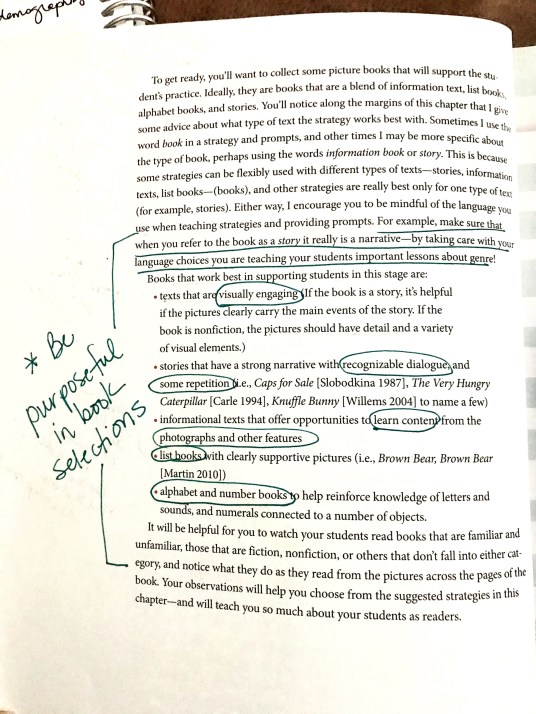 demographic
To get ready, you'll want to collect some picture books that will support the stu-
dent's practice. Ideally, they are books that are a blend of information text, list books,
alphabet books, and stories. You'll notice along the margins of this chapter that I give
some advice about what type of text the strategy works best with. Sometimes I use the
word book in a strategy and prompts, and other times I may be more specific about
the type of book, perhaps using the words information book or story. This is because
some strategies can be flexibly used with different types of texts—stories, information
texts, list books—(books), and other strategies are really best only for one type of text
(for example, stories). Either way, I encourage you to be mindful of the language you
use when teaching strategies and providing prompts. For example, make sure that
when you refer to the book as a story it really is a narrative—by taking care with your
language choices you are teaching your students important lessons about genre!
Books that work best in supporting students in this stage are:
• texts that are visually engaging (If the book is a story, it's helpful
if the pictures clearly carry the main events of the story. If the
book is nonfiction, the pictures should have detail and a variety
of visual elements.)
• stories that have a strong narrative with recognizable dialogue, and
some repetition (i.e., Caps for Sale [Slobodkina 1987], The Very Hungry
Caterpillar [Carle 1994], Knuffle Bunny [Willems 2004] to name a few)
• informational texts that offer opportunities to learn content from the
photographs and other features
• list books with clearly supportive pictures (i.e., Brown Bear, Brown Bear
[Martin 2010])
• alphabet and number books to help reinforce knowledge of letters and
sounds, and numerals connected to a number of objects.
It will be helpful for you to watch your students read books that are familiar and
unfamiliar, those that are fiction, nonfiction, or others that don't fall into either cat-
egory, and notice what they do as they read from the pictures across the pages of the
book. Your observations will help you choose from the suggested strategies in this
chapter—and will teach you so much about your students as readers.
* Be
purposeful
in book
selections